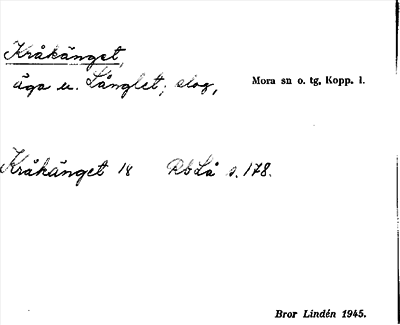 Kråkänget,
äga u. Långlet; slog, Mora sn o. tg, Kopp. l.
Kråkänget 18 RbLå s. 178.
Bror Lindén 1945.